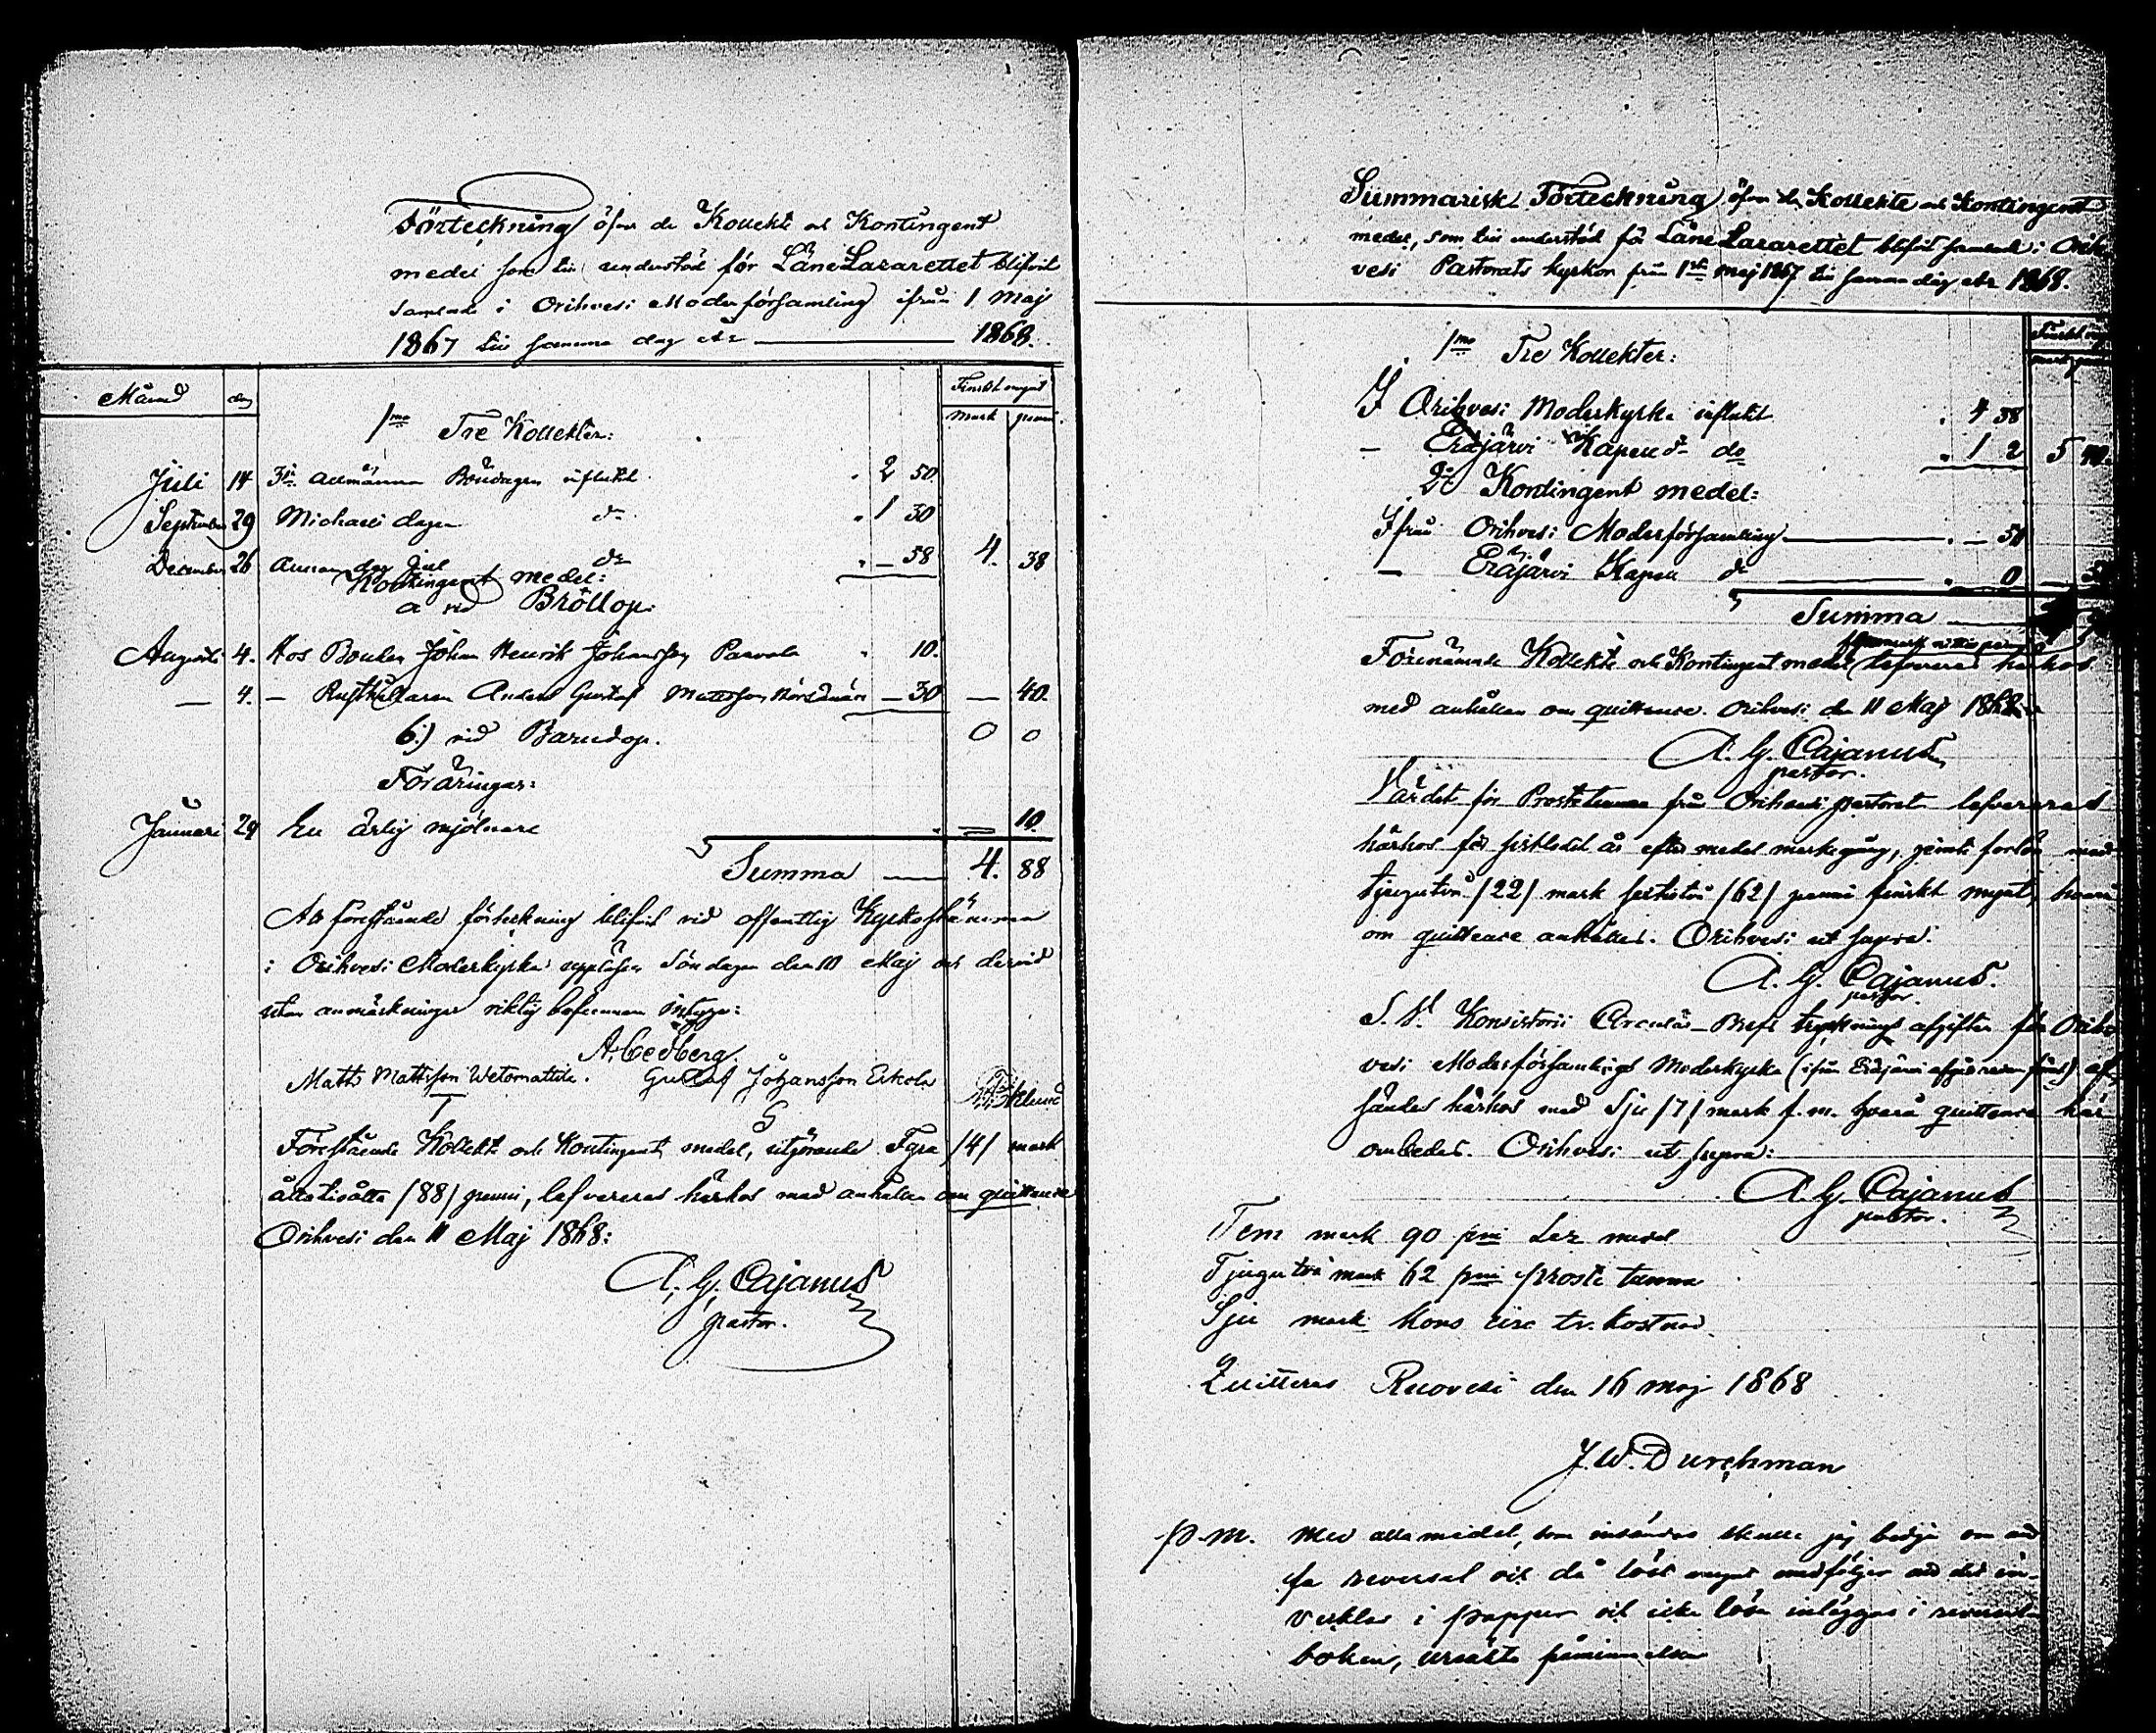 Förteckning öfver de Kollekt och Kontingent
medel som till understöd för Läns Lazarettet blifvit
samlade i Orihvesi Moderförsamling ifrån 1 Maj
1867 till samma dag år — 1868.
Månad dag Finskt mynt
mark penni
1mo Tre Kollekter:
Juli 14 3die allmänna Böndagen influtit . 2 50
September 29 Michaeli dagen do . 1 30
December 26 Annan dag Jul do . — 58 4. 38
Kontingent medel:
a vid Bröllop:
Augusti 4. Hos Bonden Johan Henrik Johansson Parvala . 10.
— 4. — Rusthållaren Anders Gustaf Mattsson — 30 — 40.
b.) vid Barndop. 0 0
Föräringar:
Januari 29 En ärlig mjölnare . — 10.
Summa — 4. 88
Att förestående förteckning blifvit vid offentlig Kyrkostämma
i Orihvesi Moderkyrka uppläsen Söndagen den 10 Maj och dervid
utan anmärkningar riktig befunnen intyga:
A. Cedberg.
Matts Mattsson Wetomattila. Gustaf Johansson Eskola
G
Förestående Kollekt och Kontingent medel, utgörande Fyra /4/ mark
åttatioåtta /88/ penni, lefvereras härhos med anhållan om quittence
Orihvesi den 11 Maj 1868:
A. G. Cajanus
pastor.
Summarisk Förteckning öfver de Kollekte och Kontingent
medel, som till understöd för Läns Lazarettet blifvit samlade i Orih
vesi Pastorats kyrkor från 1sta maj 1867 till samma dag år 1868.
Finskt
mark penni
1mo Tre Kollekter:
I Orihvesi Moderkyrka influtit . 4 38
— Eräjärvi Kapell do do . 1 2 5 40.
2do Kontingent medel:
Ifrån Orihvesi Moderförsamling — . — 50
— Eräjärvi Kapell do — . 0
Summa —
Förenämnde Kollekt och Kontingent medel lefvereras härhos
med anhållan om quittence. Orihvesi den 11 Maj 1868.
A. G. Cajanus
pastor.
Värdet för Prostetunnan från Orihvesi pastorat lefvereras
härhos för sistledet år efter medel markegång, jemte forlön med
tjugutvå /22/ mark sextiotvå /62/ penni finskt mynt, hvarå
om quittence anhålles. Orihvesi ut supra:
A. G. Cajanus.
pastor.
S. V. Konsistorii Circulär-Brefs trycknings afgiften för Orih
vesi Moderförsamlings Moderkyrka (ifrån Eräjärvi) af
sändes härhos med Sju /7/ mark f. m. hvarå quittence här
ombedes. Orihvesi ut supra:
A. G. Cajanus
pastor.
Fem mark 90 pni Laz medel
Tjugutvå mark 62 pni Proste tunna
Sju mark Kons circ tr. kostnad.
Quitteras Ruovesi den 16 maj 1868
J. W. Durchman
P. M. Med alla medel, som insändas skulle jag bedja om att
få reversal och då löst mynt medföljer att det in-
vecklas i papper och icke löst inlägges i reversal
boken, ursäkta påminnelsen